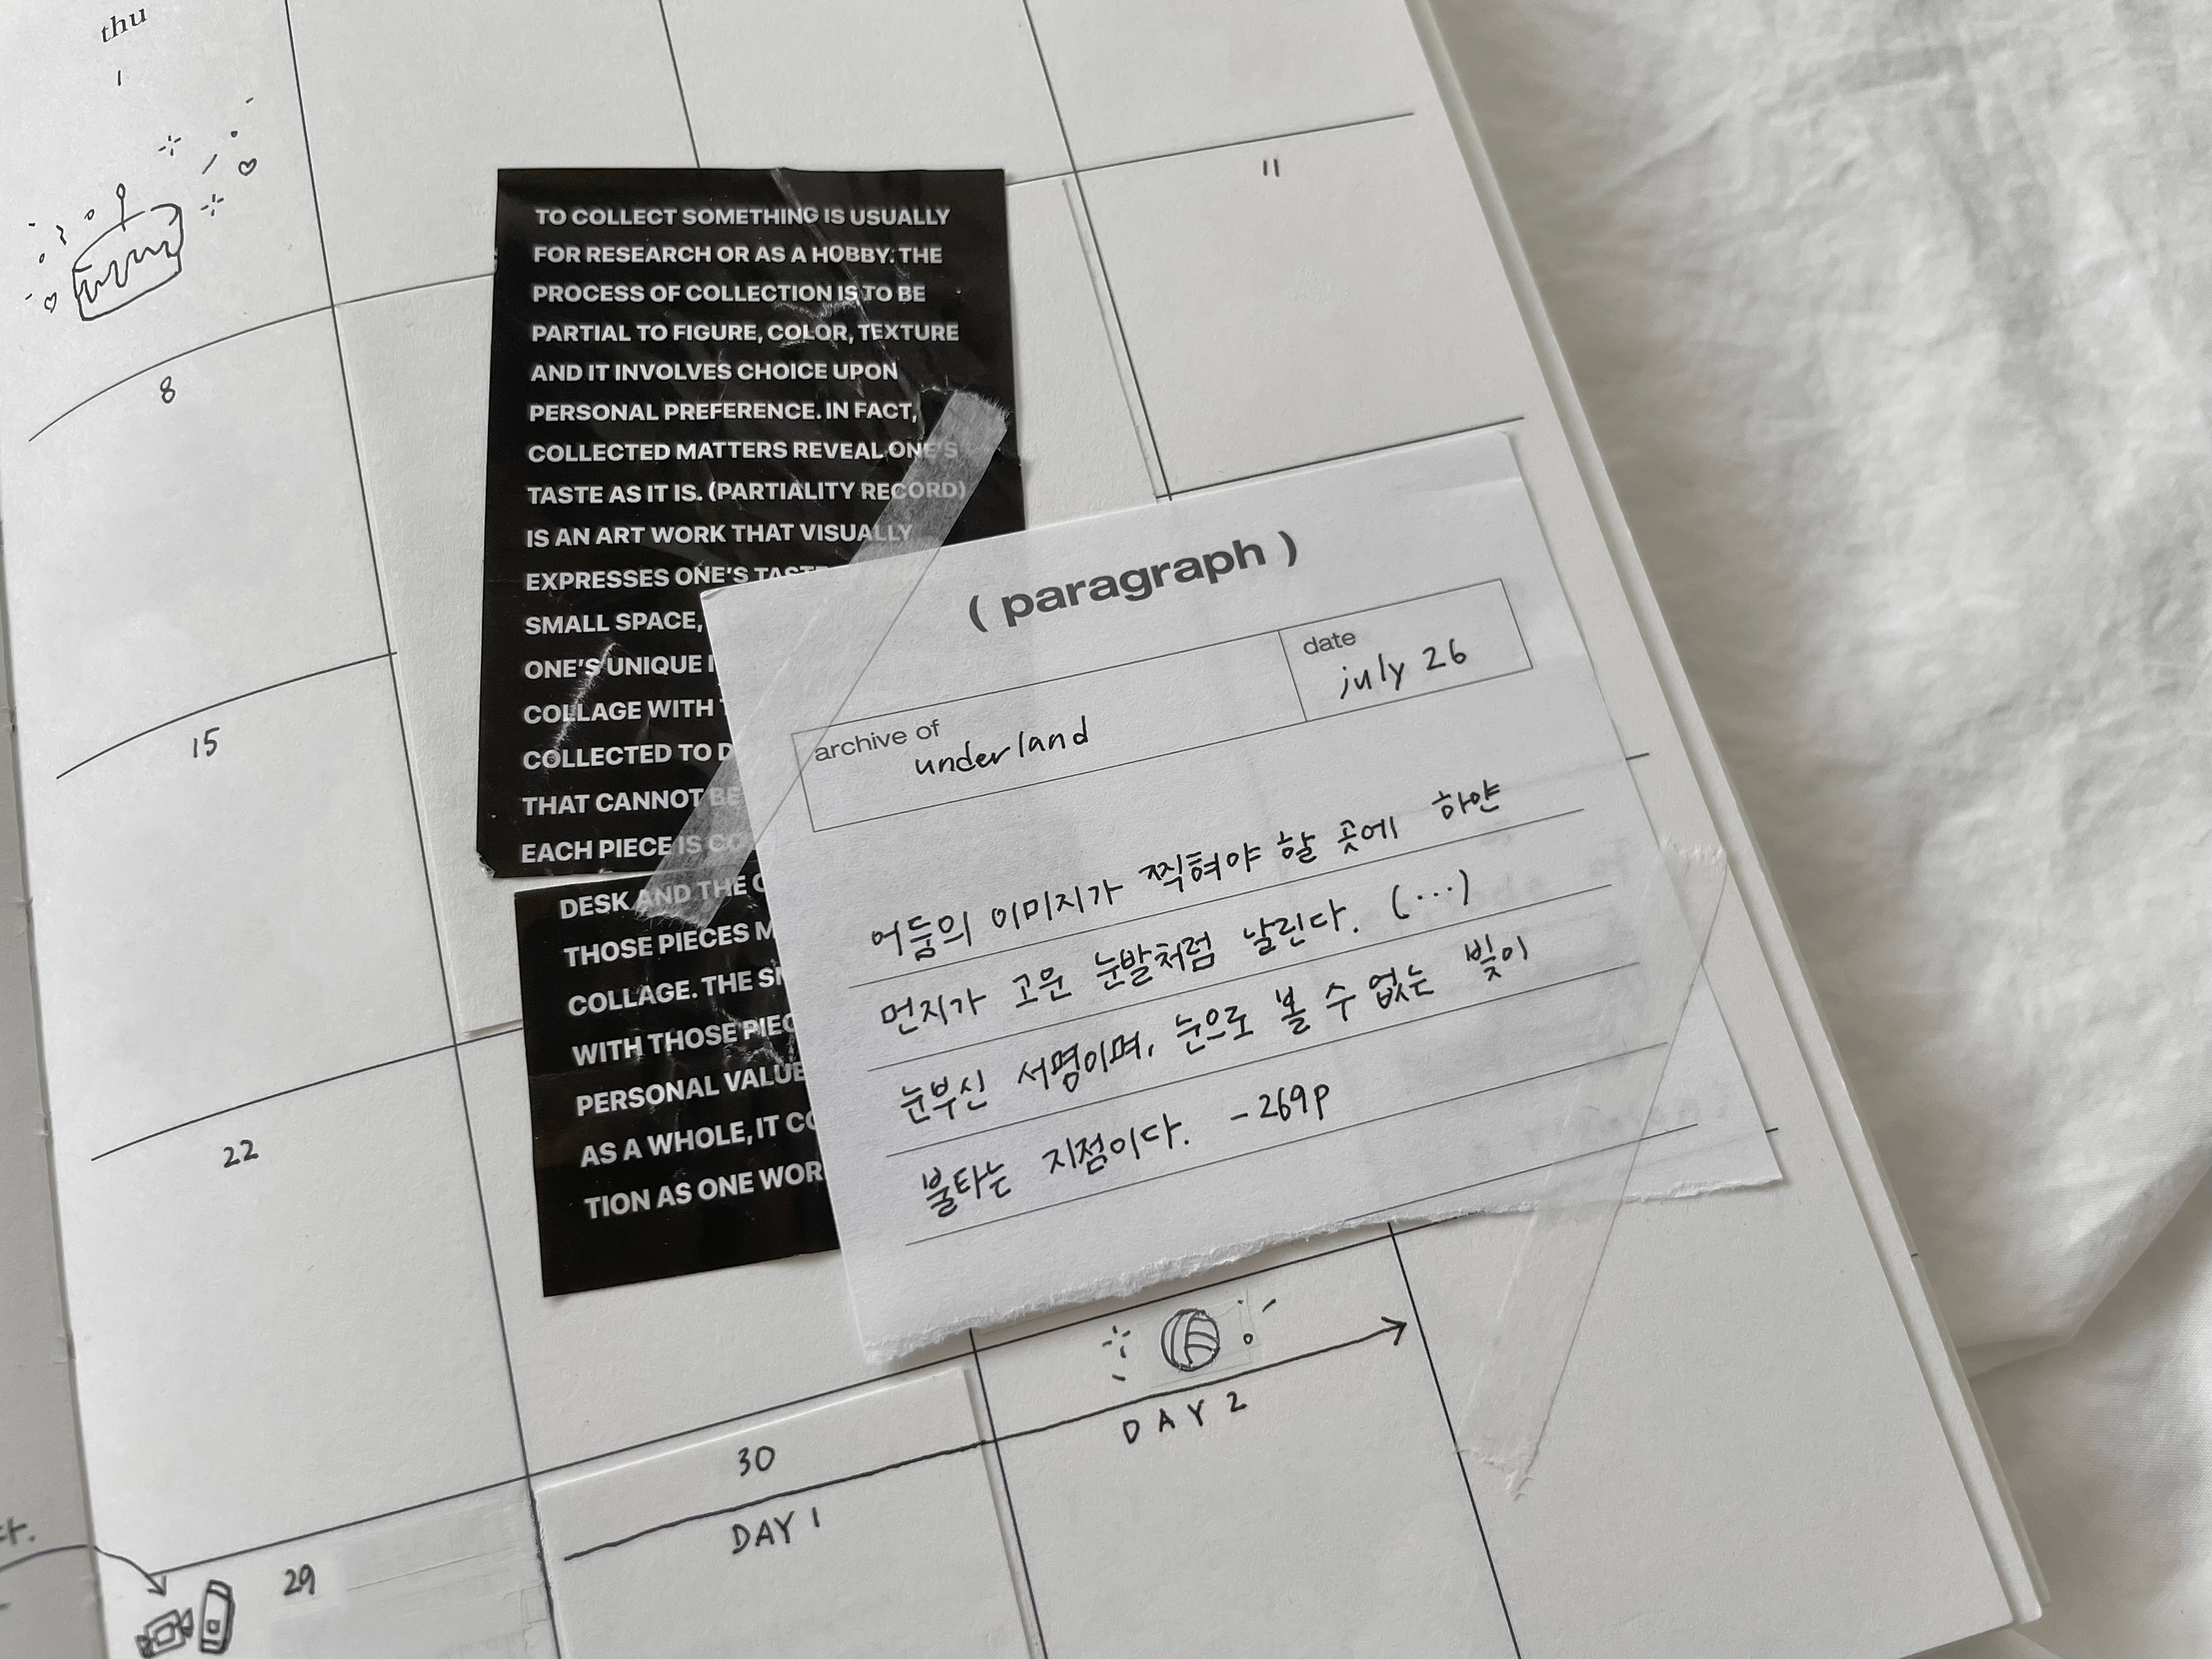 thu
1
8
15
22
29
30
11
TO COLLECT SOMETHING IS USUALLY
FOR RESEARCH OR AS A HOBBY. THE
PROCESS OF COLLECTION IS TO BE
PARTIAL TO FIGURE, COLOR, TEXTURE
AND IT INVOLVES CHOICE UPON
PERSONAL PREFERENCE. IN FACT,
COLLECTED MATTERS REVEAL ONE'S
TASTE AS IT IS. (PARTIALITY RECORD)
IS AN ART WORK THAT VISUALLY
EXPRESSES ONE'S TASTE
SMALL SPACE,
ONE'S UNIQUE
COLLAGE WITH
COLLECTED TO
THAT CANNOT BE
EACH PIECE IS
DESK AND THE
THOSE PIECES
COLLAGE. THE
WITH THOSE
PERSONAL VALUE
AS A WHOLE, IT
TION AS ONE
( paragraph )
archive of
underland
date
july 26
어둠의 이미지가 찍혀야 할 곳에 하얀
먼지가 고운 눈발처럼 날린다. (...)
눈부신 서명이며, 눈으로 볼 수 없는 빛이
불타는 지점이다. - 269p
DAY 1
DAY 2